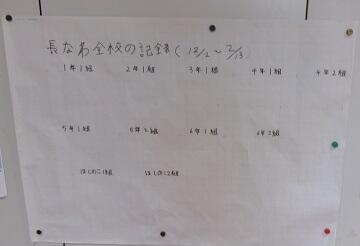 長なわ全校の記録(12/2～2/13)
1年1組 2年1組 3年1組 4年1組 4年2組
5年1組 5年2組 6年1組 6年2組
ほしのこ1組 ほしのこ2組